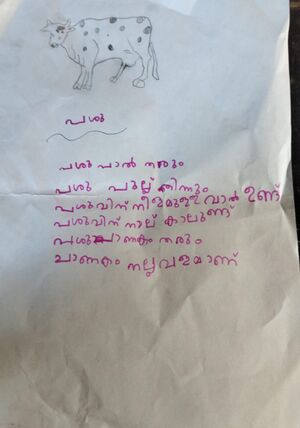 പശു
പശു പാൽ തരും
പശു പുല്ല് തിന്നും
പശുവിന് നീളമുള്ള വാൽ ഉണ്ട്
പശുവിന് നാല് കാലുണ്ട്
പശു ചാണകം തരും
ചാണകം നല്ല വളമാണ്